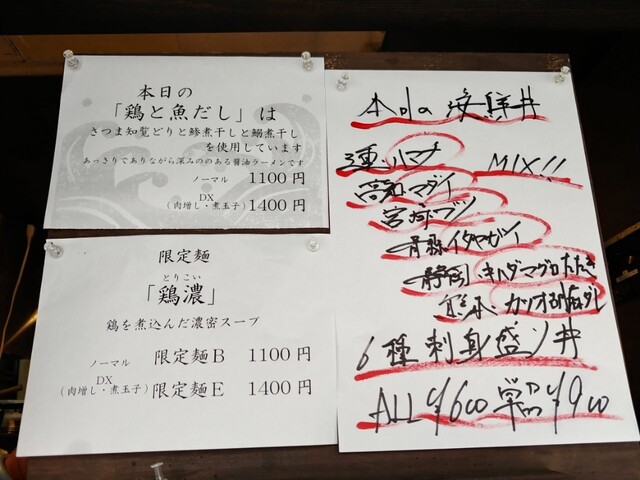 本日の
「鶏と魚だし」は
さつま知覧どりと鯵煮干しと鰯煮干し
を使用しています
あっさりでありながら深みののある醤油ラーメンです
ノーマル 1100円
DX
(肉増し・煮玉子) 1400円
限定麺
とりこい
「鶏濃」
鶏を煮込んだ濃密スープ
ノーマル 限定麺B 1100円
DX
(肉増し・煮玉子) 限定麺E 1400円
本日の海鮮丼
ハマチ MIX!!
高知マダイ
宮崎ブリ
青森イタヤガイ
静岡キハダマグロたたき
熊本・カツオ
6種刺身盛り丼
ALL ¥600 単品¥900